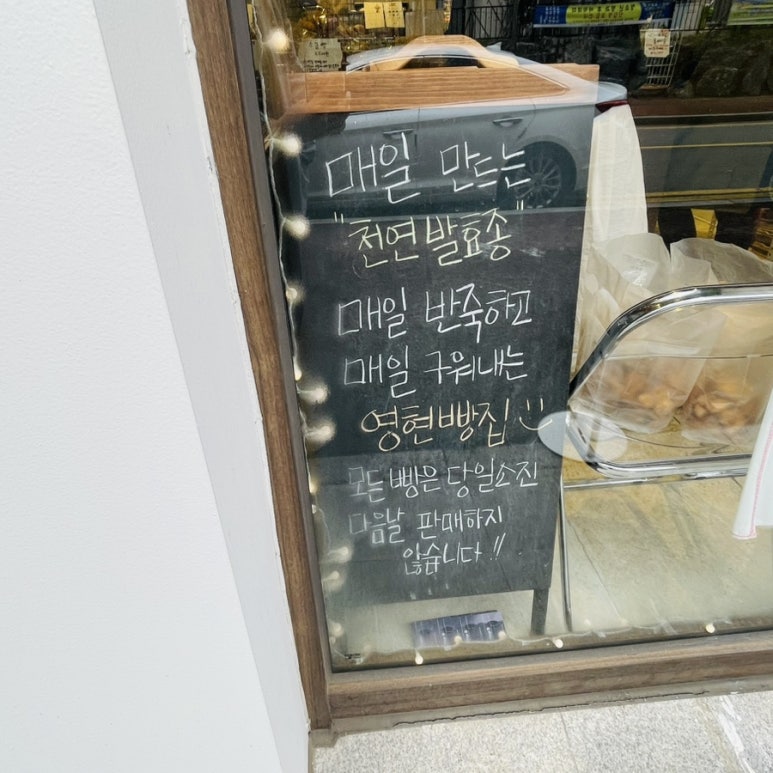 매일 만드는
"천연발효종"
매일 반죽하고
매일 구워내는
영현빵집
모든 빵은 당일소진
다음날 판매하지
않습니다!!